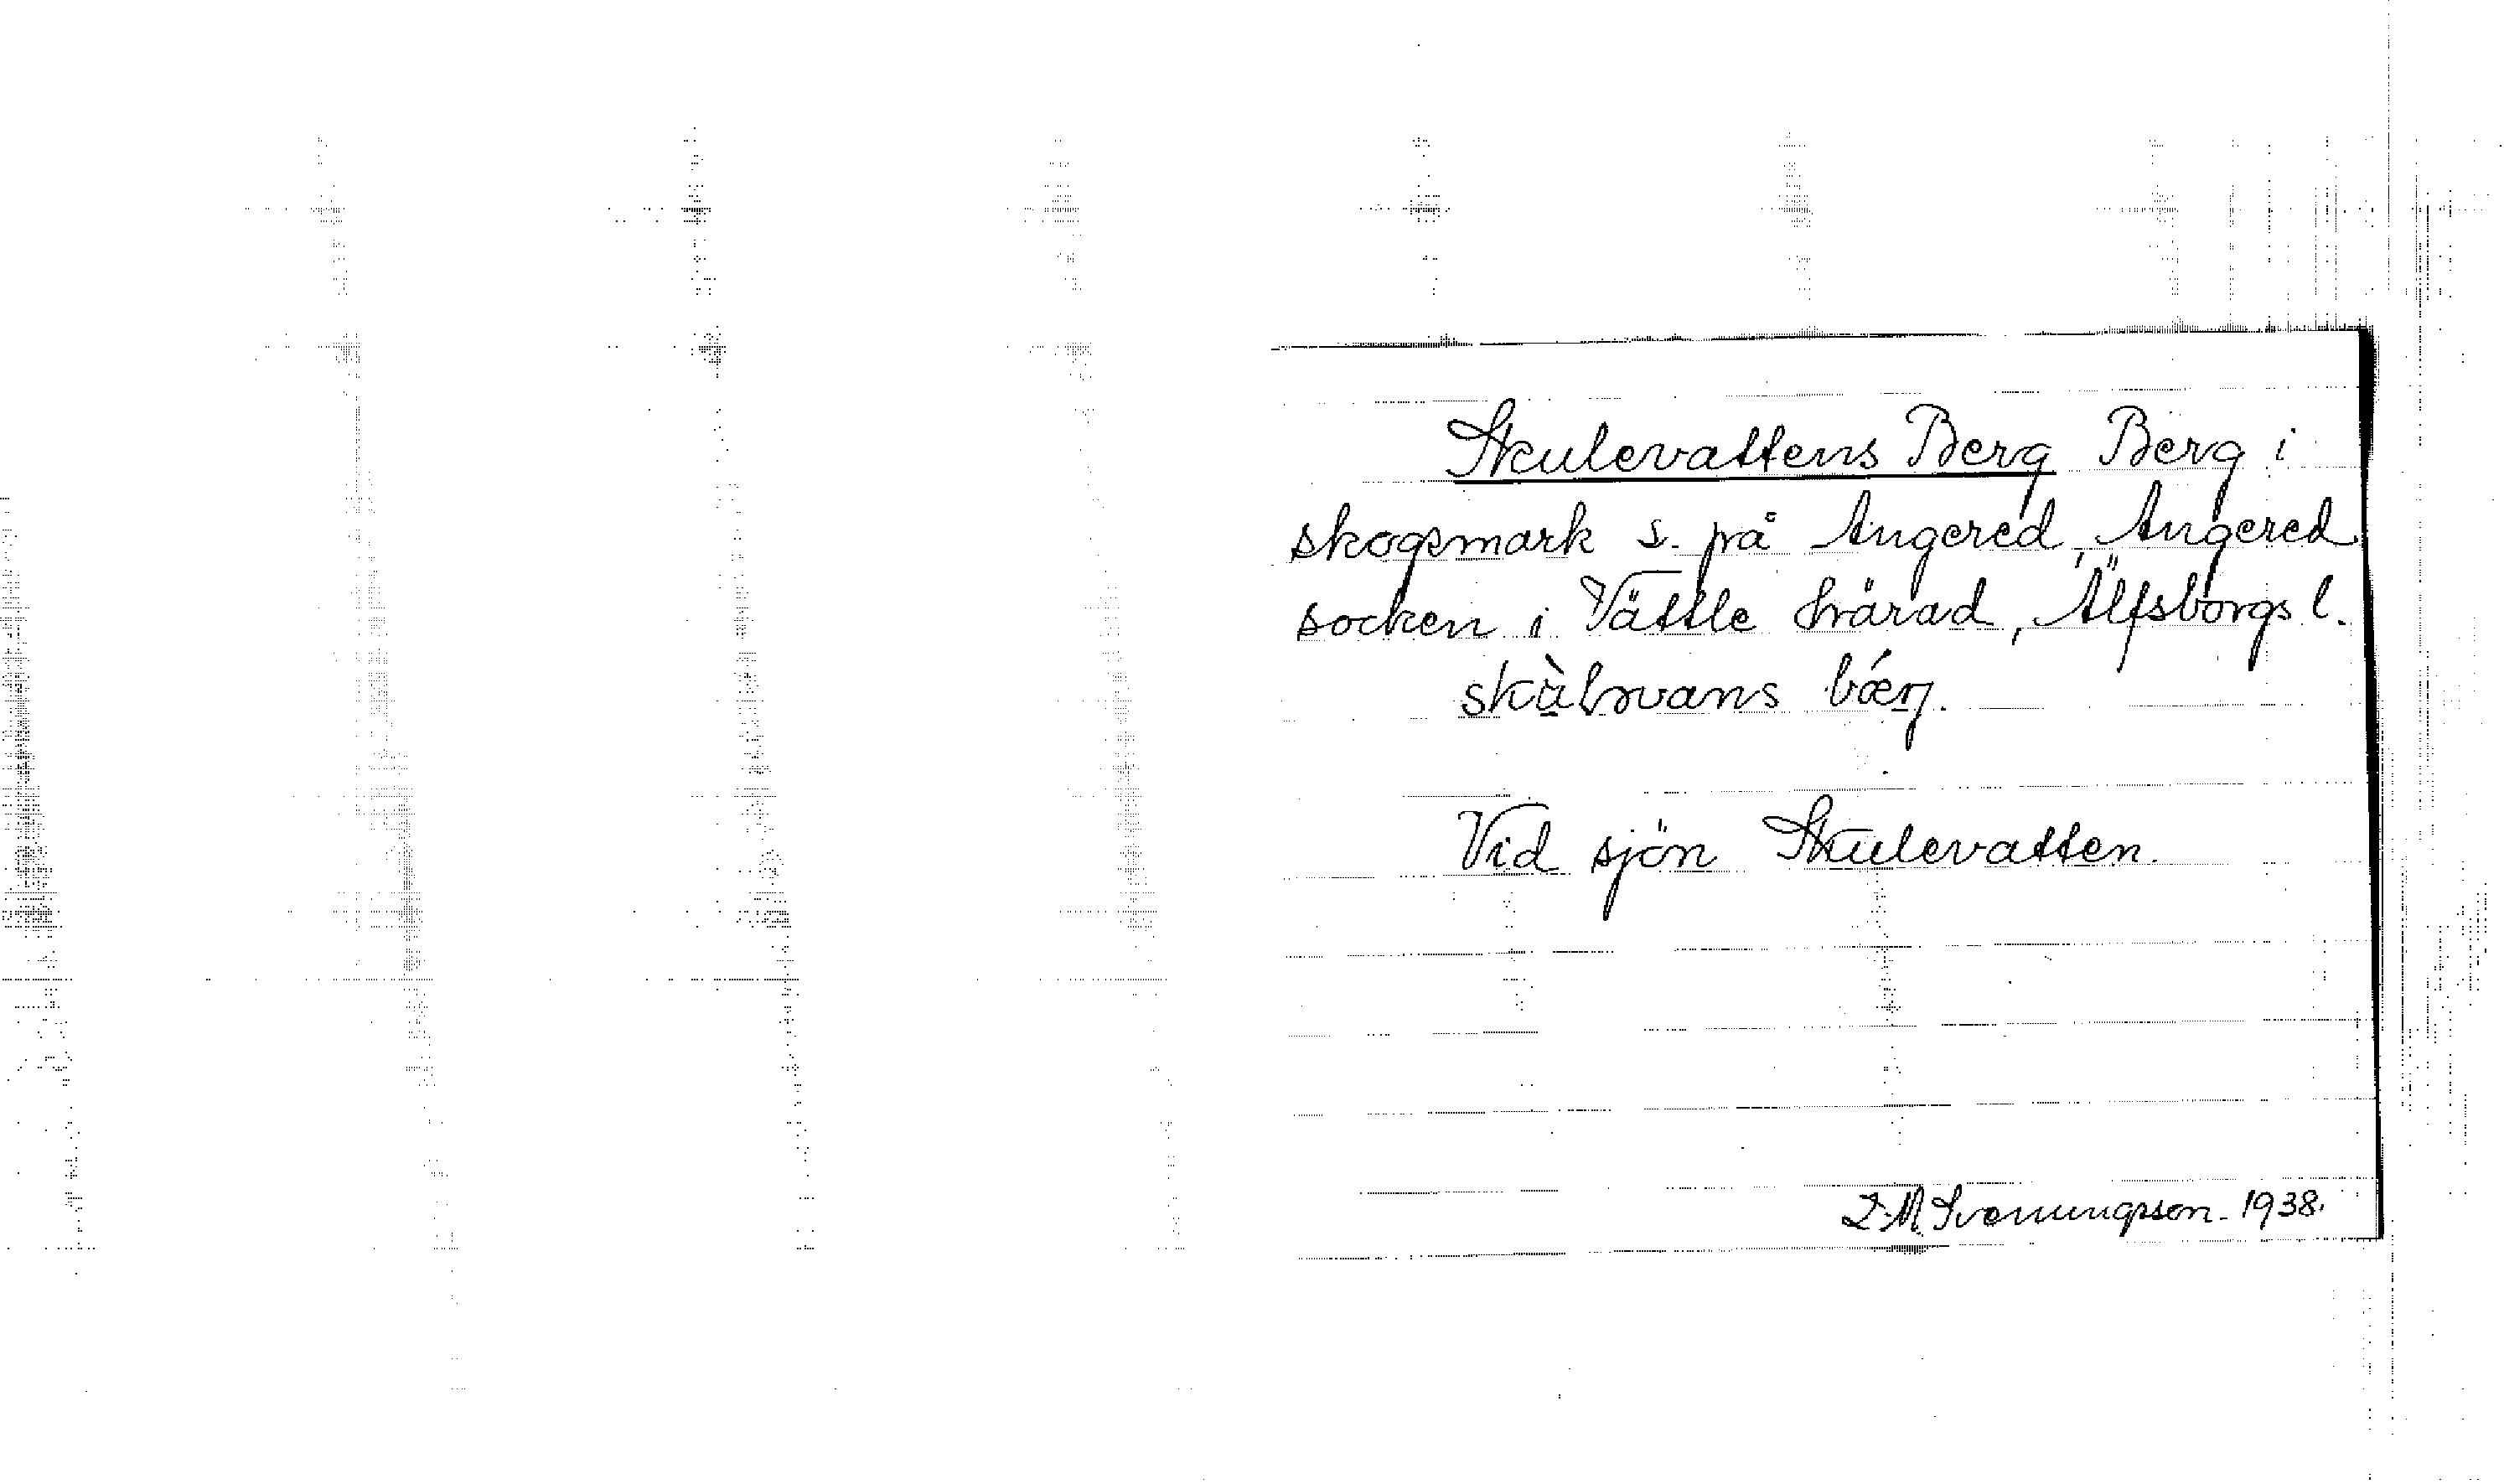 Skulevattens Berg Berg i
skogsmark s. på Angered, Angered
socken i Vättle härad, Älfsborgs l.
bǽrg.
Vid sjön Skulevatten.
I. M. Svenungsson. 1938.